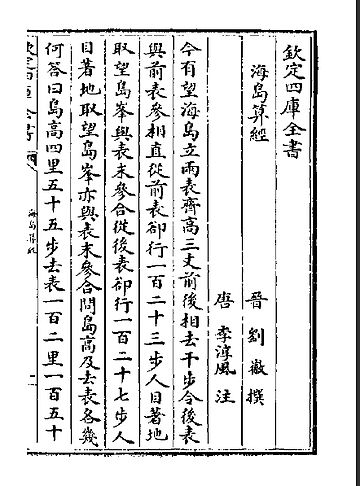 欽定四庫全書
海島算經
晉 劉徽 撰
唐 李淳風 注
今有望海島立兩表齊高三丈前後相去千步令後表
與前表參相直從前表卻行一百二十三步人目著地
取望島峯與表末參合從後表卻行一百二十七步人
目著地取望島峯亦與表末參合問島高及去表各幾
何答曰島高四里五十五步去表一百二里一百五十
海島算經